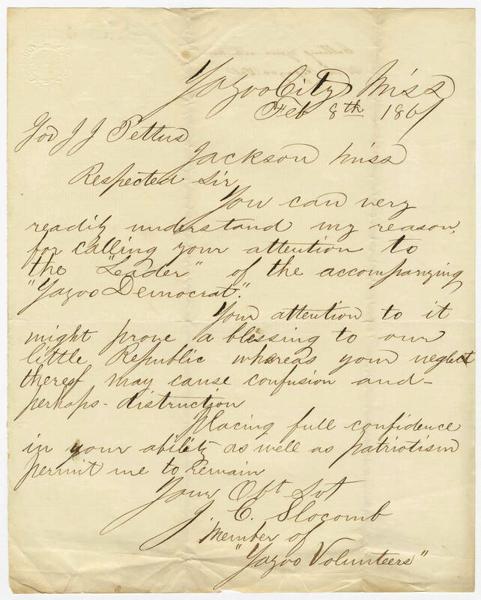 Yazoo City, Miss
Feb 8th 1861
Gov J J Pettus
Jackson Miss
Respected Sir
You can very
readily understand my reason,
for calling your attention to
the "Leader" of the accompanying
"Yazoo Democrat".
Your attention to it
might prove a blessing to our
little Republic whereas your neglect
thereof may cause confusion and-
perhaps- distruction
Placing full confidence
in your ability as well as patriotism
permit me to Remain
Your Obt Svt
J. C. Slocomb
Member of
"Yazoo Volunteers"